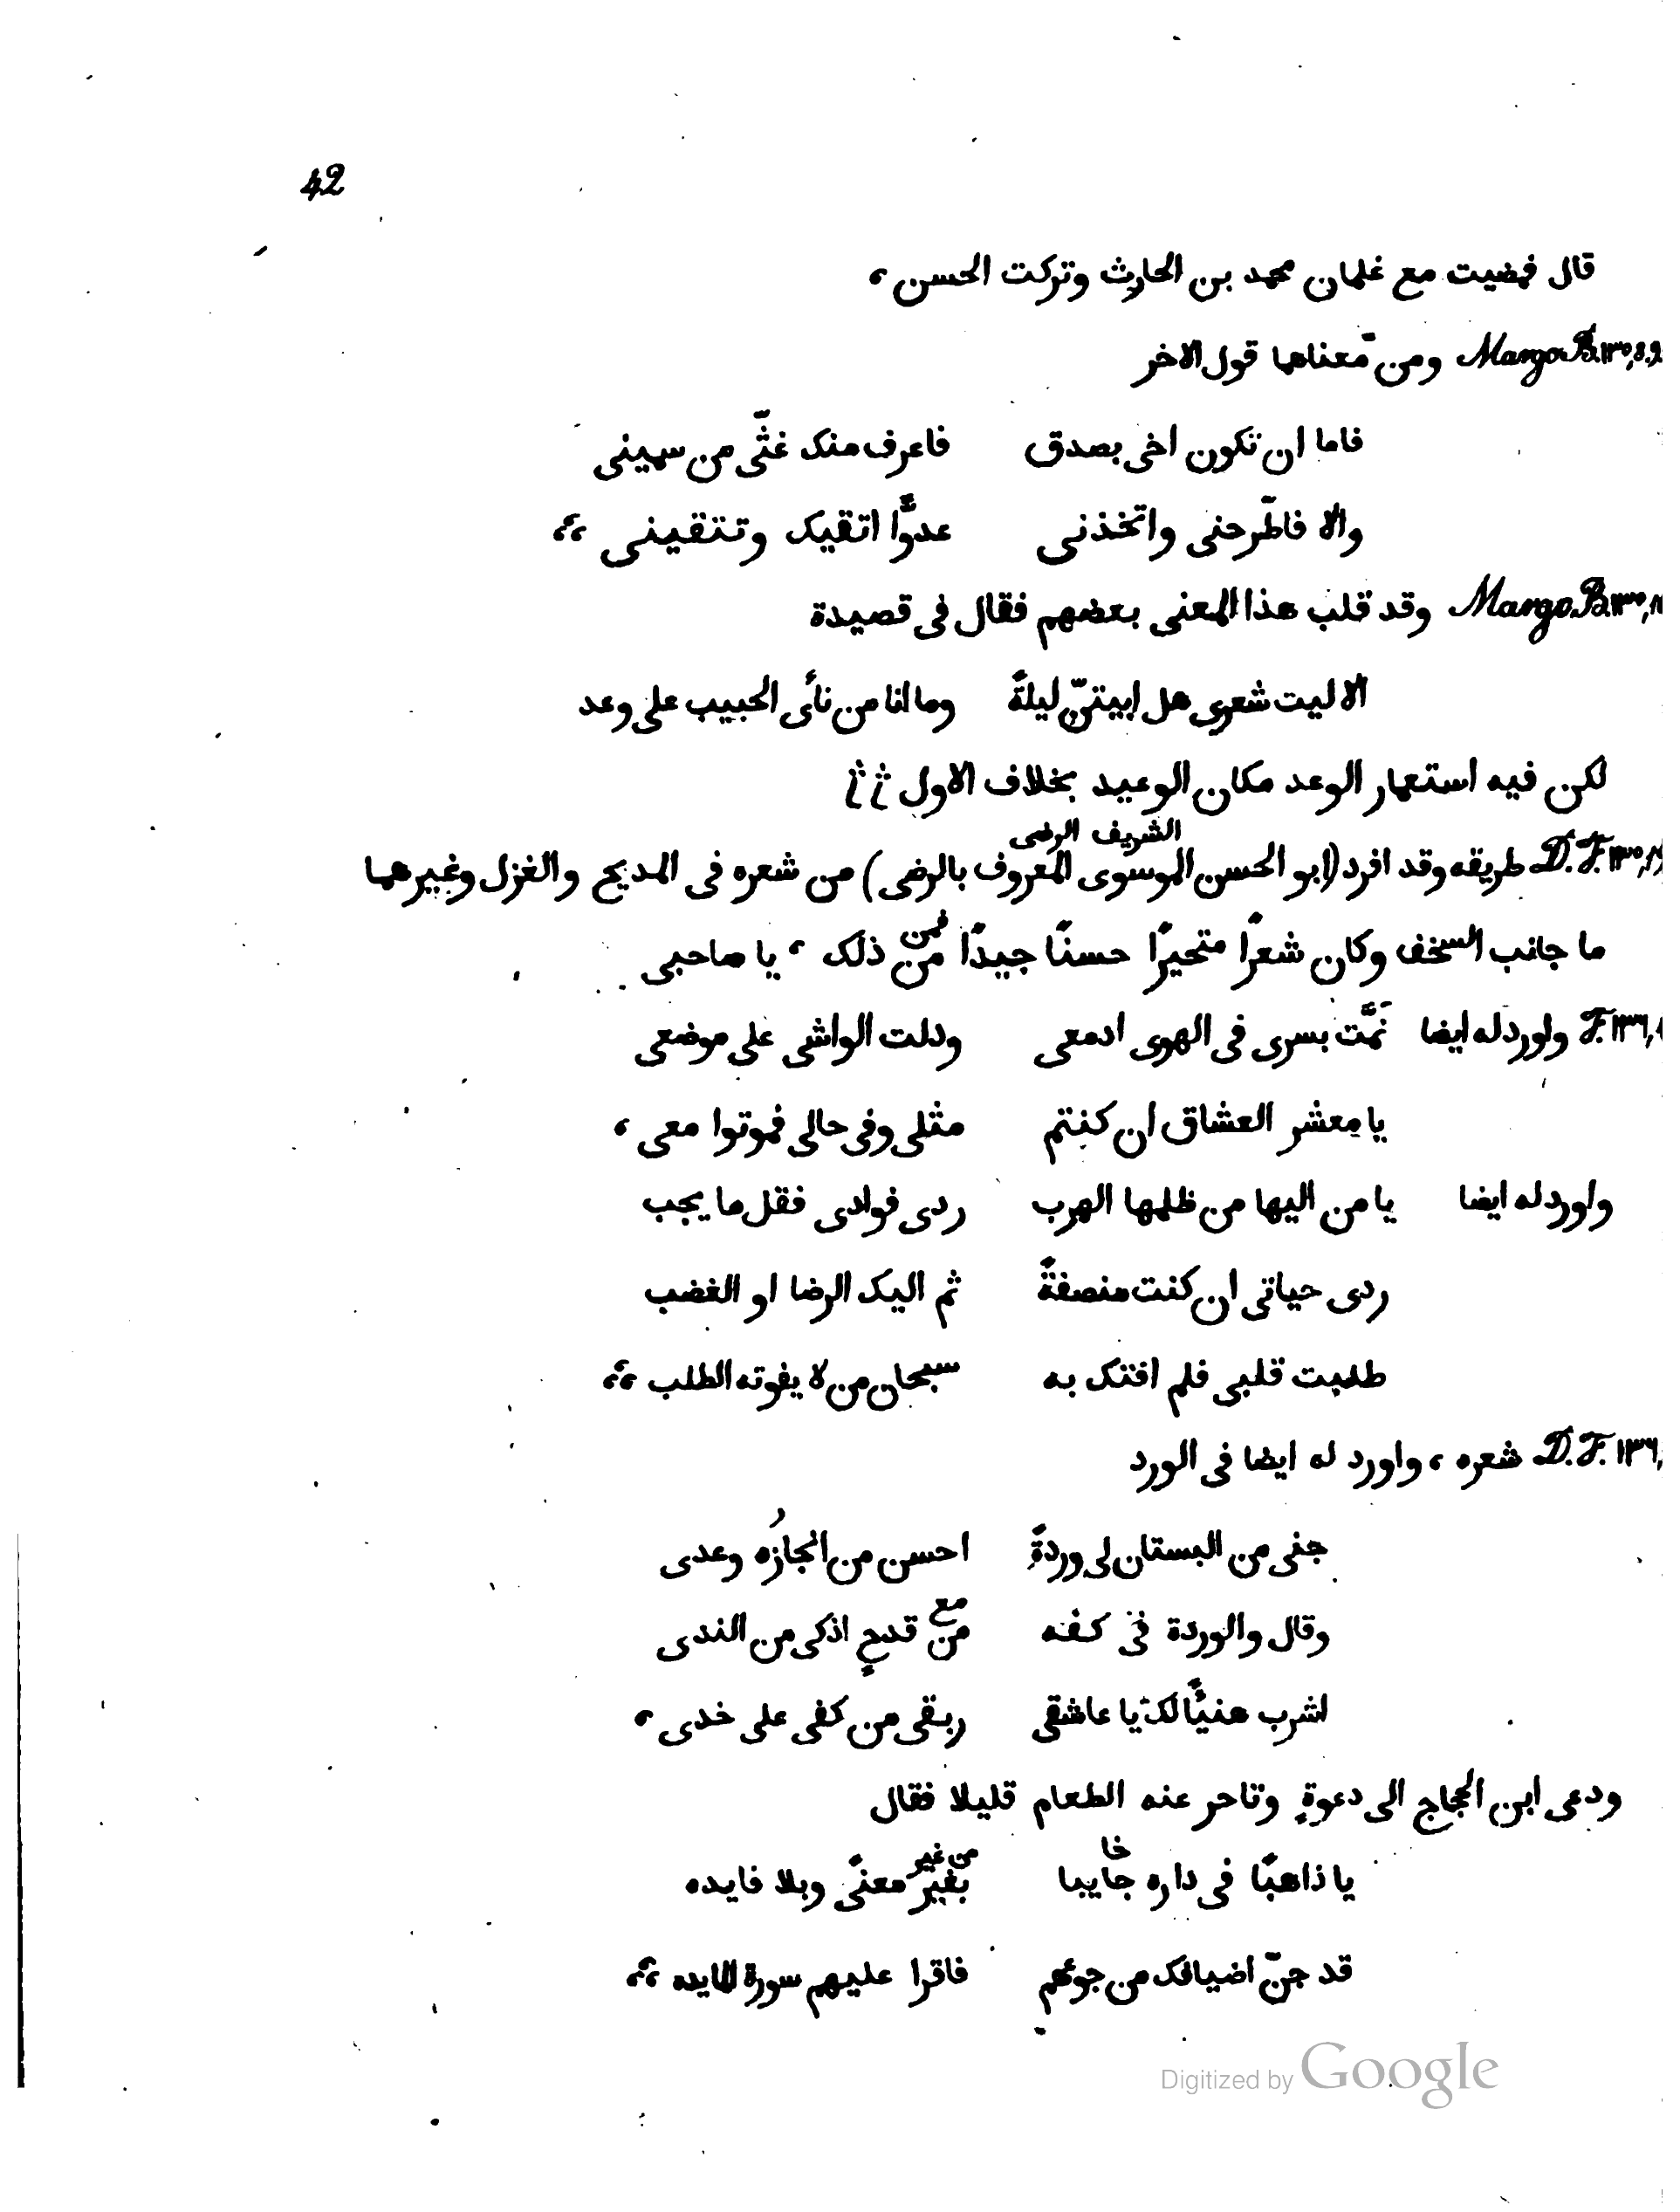 42
قال فمضيت مع غلمان محمد بن الحارث وتركت الحسن ،
Margo. B. ١٣٥, 8.9 ومن معناها قول الاخر
فاما ان تكون اخى بصدق فاعرف منك غثّى من سمينى
والا فاطّرحنى واتخذنى عدوًّا اتقيك وتتقينى ،،
Margo. B. ١٣٥, وقد قلب هذا المعنى بعضهم فقال فى قصيدة
الا ليت شعرى هل ابيتنّ ليلةً وما انا من نأى الحبيب على وعد
لكن فيه استعمار الوعد مكان الوعيد بخلاف الاول
الشريف الرضى
D. F. ١٣٥, طريقه وقد افرد (ابو الحسن الموسوى المعروف بالرضى) من شعره فى المديح والغزل وغيرهما
فمن
ما جانب السخف وكان شعرًا متحيرًا حسنًا جيدًا من ذلك ، يا صاحبى
F. ١٣٦, واورد له ايضا نَمَّت بسرى فى الهوى ادمعى ودلت الواشى على موضعى
يا معشر العشاق ان كنتم مثلى وفى حالى فموتوا معى ،
واورد له ايضا يا من اليها من ظلمها الهرب ردى فوادى فقل ما يجب
ردى حياتى ان كنت منصفةً ثم اليك الرضا او الغضب
طلبت قلبى فلم افتك به سبحان من لا يفوته الطلب ،،
D. F. ١٣٦, شعره ، واورد له ايضا فى الورد
جنى من البستان لى وردةً احسن من انجازُه وعدى
مع
وقال والوردة فى كفه من قدحٍ اذكى من الندى
اشرب هنيًّا لك يا عاشقى ريقى من كفى على خدى ،
ودعى ابن الحجاج الى دعوةٍ وتاحر عنه الطعام قليلا فقال
خا من غير
يا ذاهبًا فى داره جايبا بغير معنًى وبلا فايده
قد جنّ اضيافك من جوعهم فاقرا عليهم سورة المايده ،،
Digitized by Google